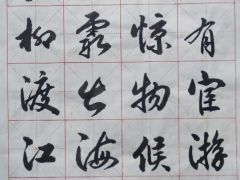 有宦游
惊物候
霞出海
柳渡江